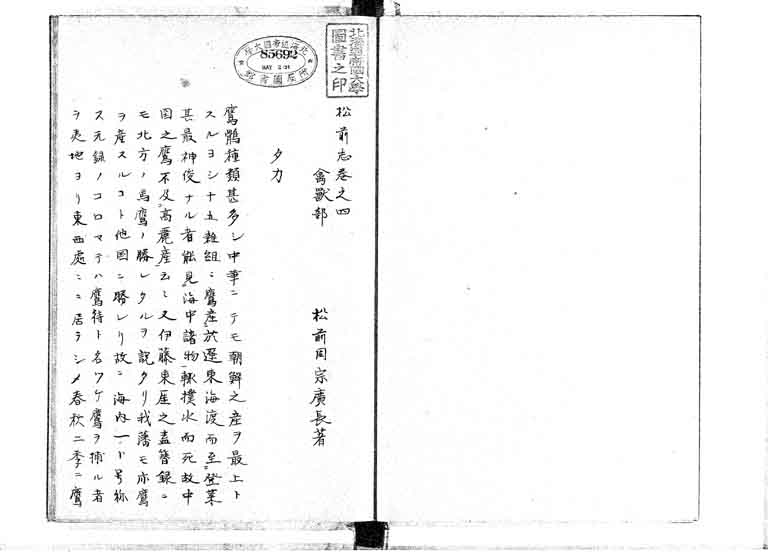 北海道帝國大學
圖書之印
北海道帝國大學
85692
MAY 2 31
附屬圖書館
松前志巻之四
禽獸部
松前同宗廣長著
タカ
鷹鶻種類甚多シ中華ニテモ朝鮮之産ヲ最上ト
スルヨシ十五雑組ニ鷹産於遼東海渡而至登莱
甚最神俊ナル者能見海中諸物輙撲水而死故中
国之鷹不及高麗産云シ又伊藤東厓之盍簪録ニ
モ北方ノ馬鷹ノ勝レタルヲ説クリ我藩モ亦鷹
ヲ産スルコト他国ニ勝レリ故ニ海内一ト号称
ス元録ノコロマテハ鷹待ト名ツケ鷹ヲ捕ル者
ヲ夷地ヨリ東西處ニニ居ラシメ春秋二季ニ鷹